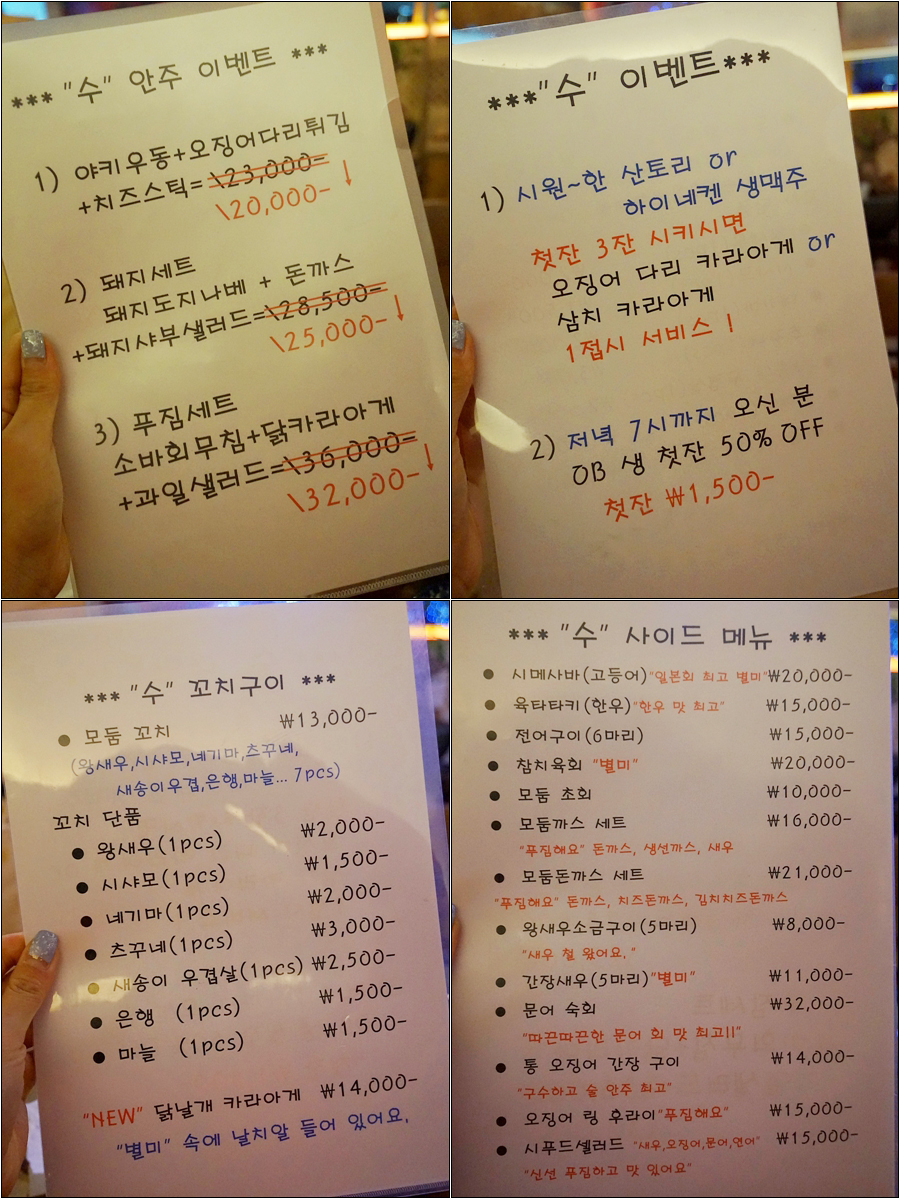 *** "수" 안주 이벤트 ***
1) 야키우동+오징어다리튀김
+치즈스틱=\23,000-
\20,000- ↓
2) 돼지세트
돼지도지나베 + 돈까스
+돼지샤부샐러드=\28,500-
\25,000- ↓
3) 푸짐세트
소바회무침+닭카라아게
+과일샐러드=\36,000-
\32,000- ↓
***"수" 이벤트***
1) 시원~한 산토리 or
하이네켄 생맥주
첫잔 3잔 시키시면
오징어 다리 카라아게 or
삼치 카라아게
1접시 서비스 !
2) 저녁 7시까지 오신 분
OB 생 첫잔 50% OFF
첫잔 ₩1,500-
*** "수" 꼬치구이 ***
● 모둠 꼬치 ₩13,000-
(왕새우,시샤모,네기마,츠꾸네,
새송이우겹,은행,마늘... 7pcs)
꼬치 단품
● 왕새우(1pcs) ₩2,000-
● 시샤모(1pcs) ₩1,500-
● 네기마(1pcs) ₩2,000-
● 츠꾸네(1pcs) ₩3,000-
● 새송이 우겹살(1pcs) ₩2,500-
● 은행 (1pcs) ₩1,500-
● 마늘 (1pcs) ₩1,500-
"NEW" 닭날개 카라아게 ₩14,000-
"별미" 속에 날치알 들어 있어요.
*** "수" 사이드 메뉴 ***
● 시메사바(고등어)"일본회 최고 별미"₩20,000-
● 육타타키(한우)"한우 맛 최고" ₩15,000-
● 전어구이(6마리) ₩15,000-
● 참치육회 "별미" ₩20,000-
● 모둠 초회 ₩10,000-
● 모둠까스 세트 ₩16,000-
"푸짐해요" 돈까스, 생선까스, 새우
● 모둠돈까스 세트 ₩21,000-
"푸짐해요" 돈까스, 치즈돈까스, 김치치즈돈까스
● 왕새우소금구이(5마리) ₩8,000-
"새우 철 왔어요."
● 간장새우(5마리)"별미" ₩11,000-
● 문어 숙회 ₩32,000-
"따끈따끈한 문어 회 맛 최고!!"
● 통 오징어 간장 구이 ₩14,000-
"구수하고 술 안주 최고"
● 오징어 링 후라이"푸짐해요" ₩15,000-
● 시푸드샐러드 "새우,오징어,문어,연어" ₩15,000-
"신선 푸짐하고 맛 있어요"